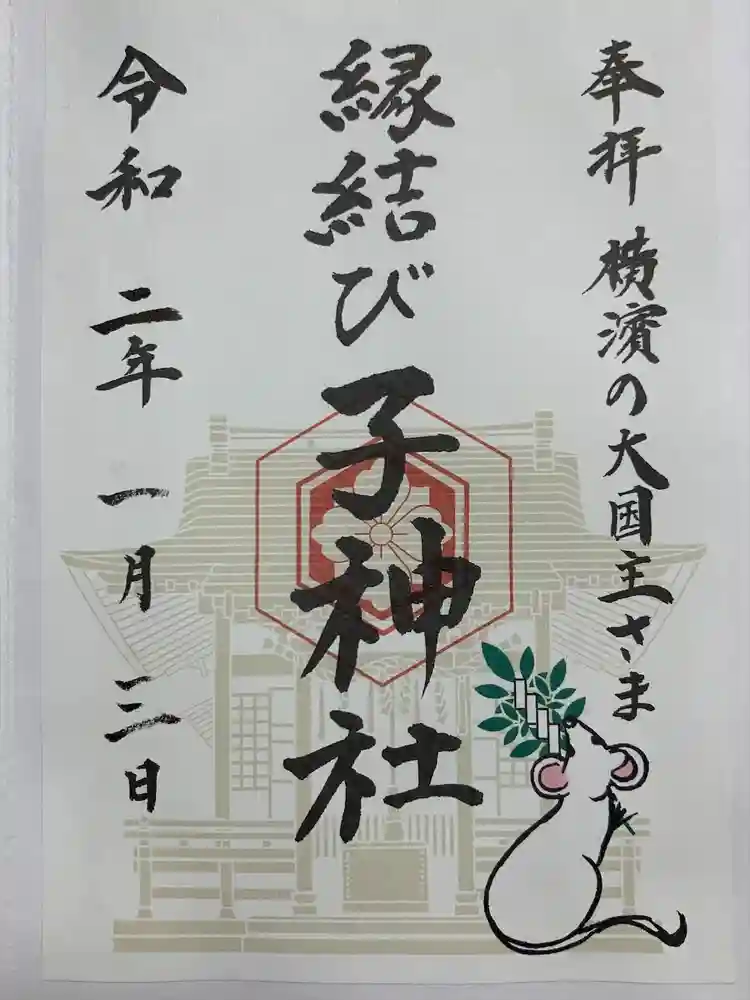 奉拝 横濱の大国主さま
縁結び 子神社
令和 二年 一月 三日